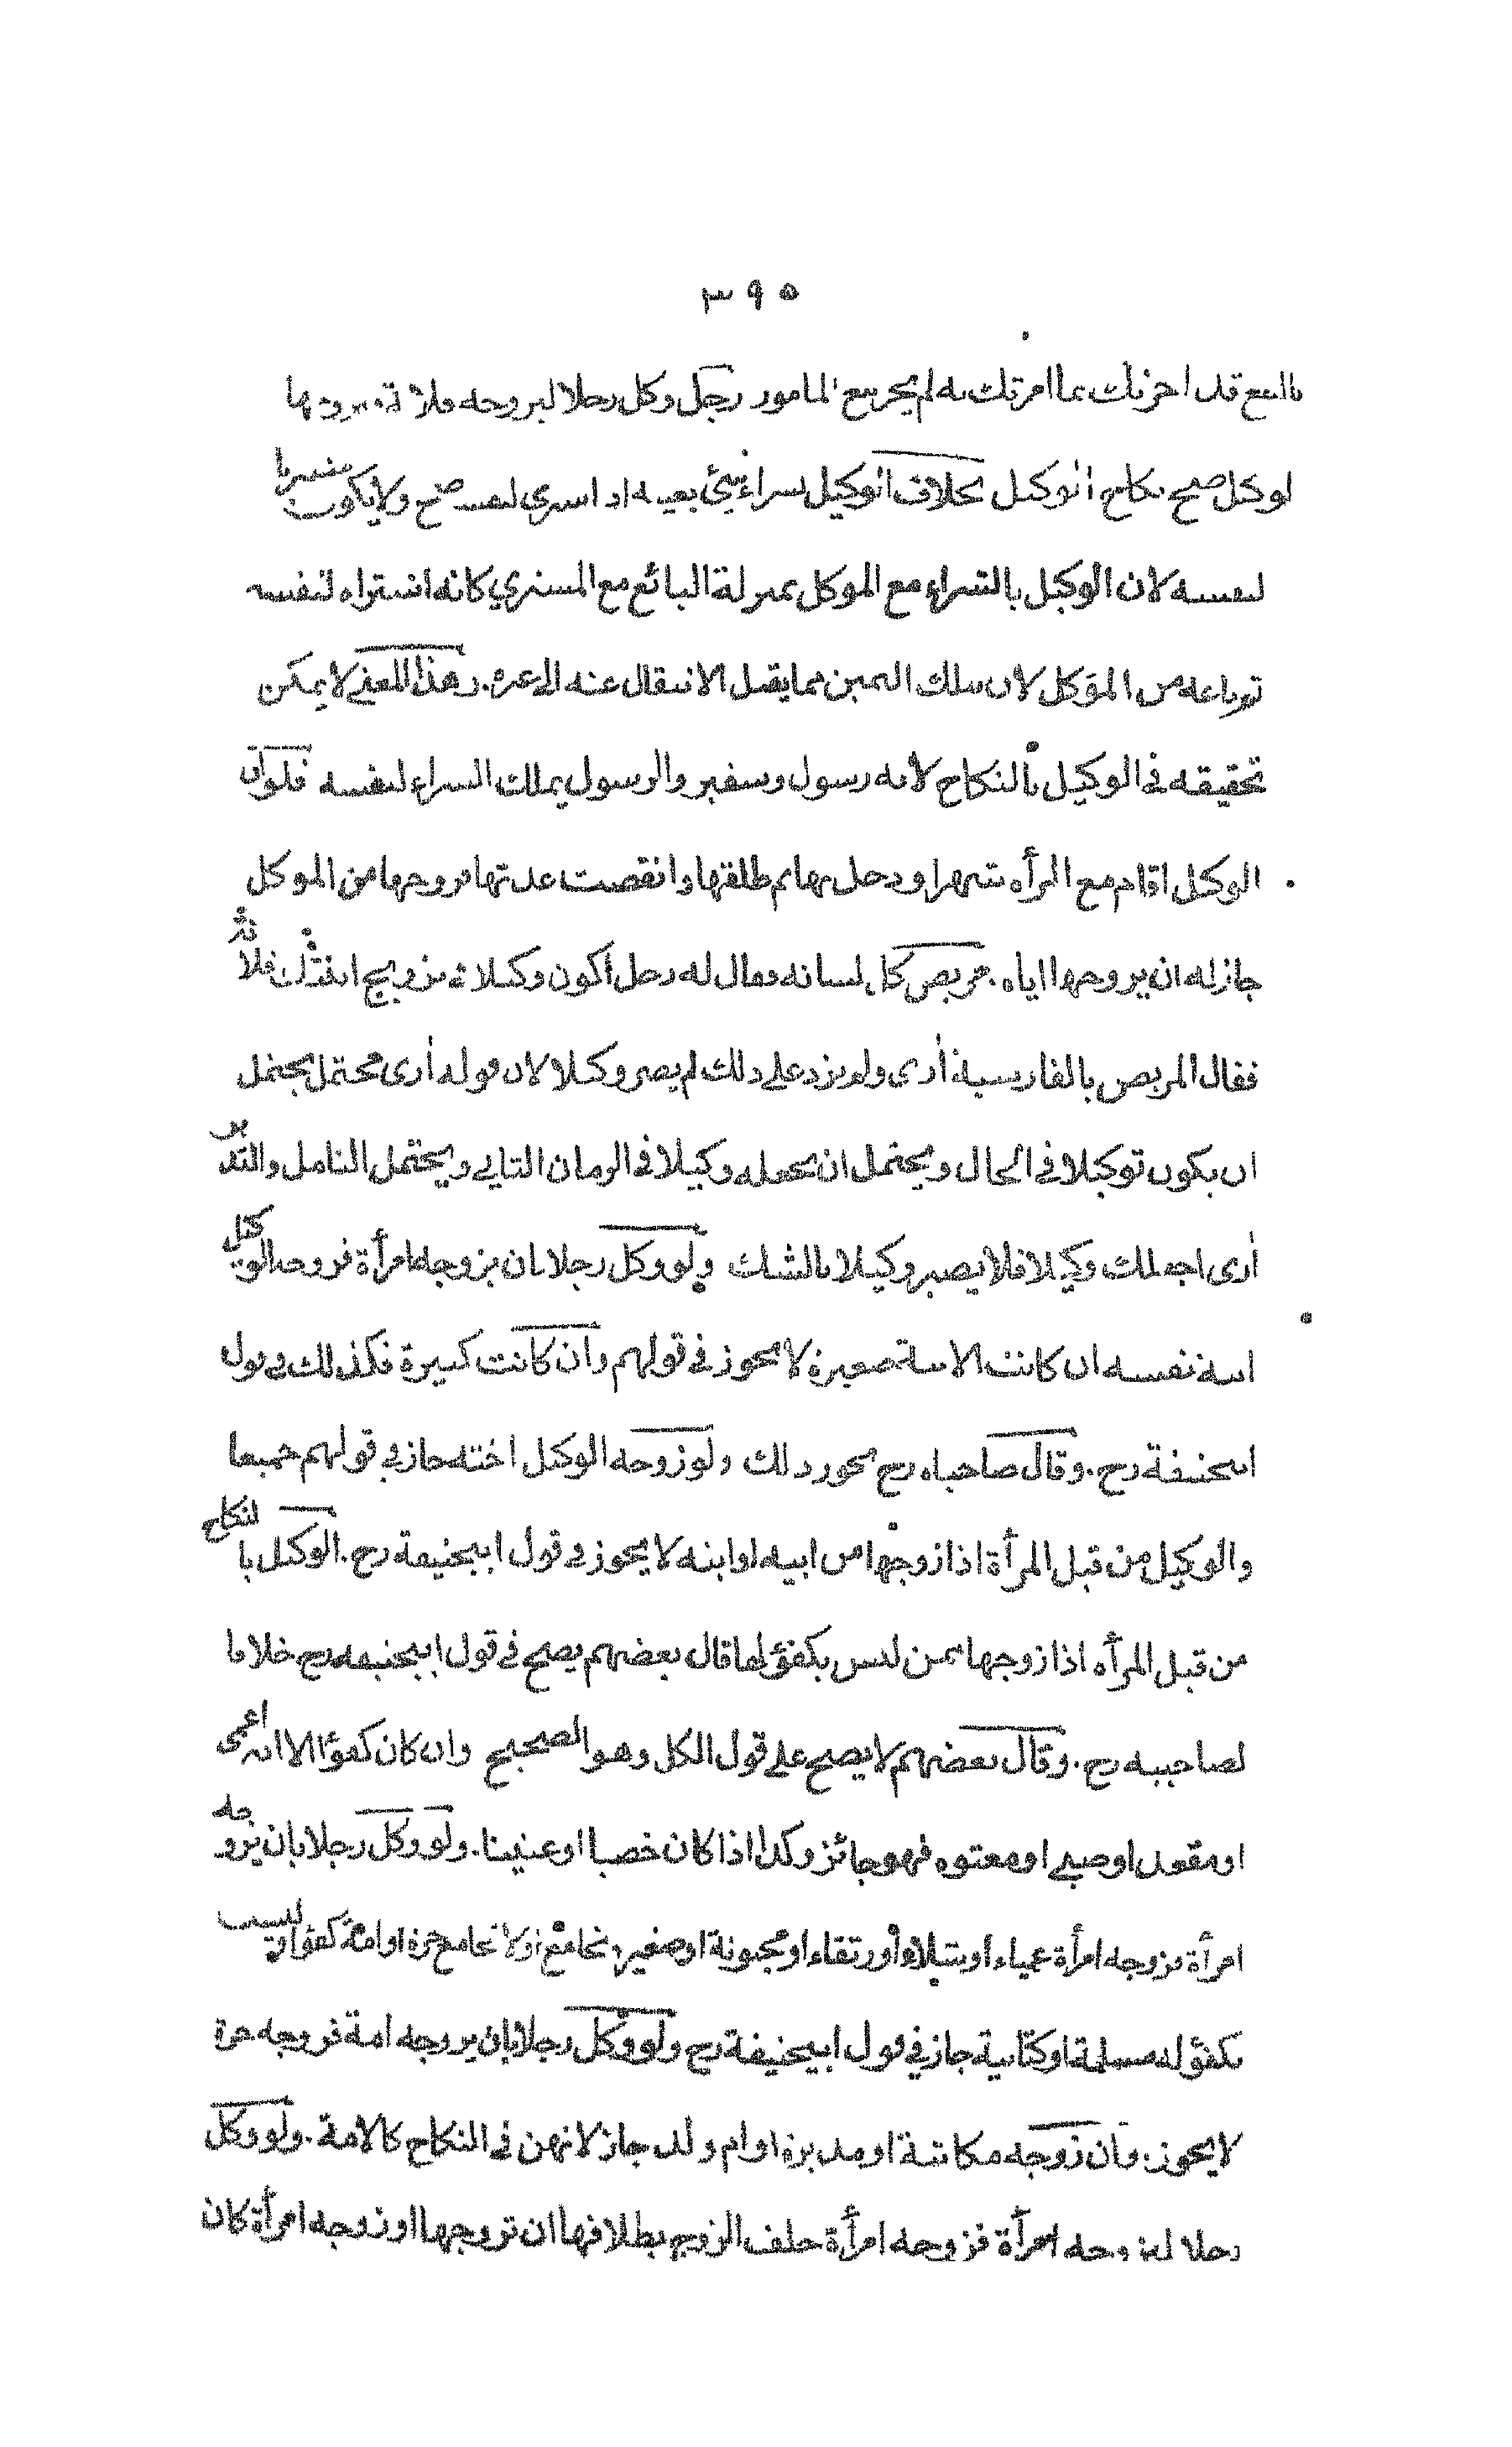 ٣٩٥
بالبيع قد اجزتك بما امرتك به لم يجز بيع المامور رجل وكل رجلا ليزوجه فلانة فتزوجها
لوكيل صح نكاح الوكيل بخلاف الوكيل بشراء شيئ بعينه اذا اشترى لنفسه صح ولا يكون مشتريا
لنفسه لان الوكيل بالشراء مع الموكل بمنزلة البائع مع المشتري كانه اشتراه لنفسه
ثم باعه من الموكل لان ملك اليمين مما يقبل الانتقال عنه الى غيره. وهذا المعنى لا يمكن
تحقيقه في الوكيل بالنكاح لانه رسول وسفير والرسول يملك الشراء لنفسه فلو ان
الوكيل اقام مع المرأه شهرا ودخل بها ثم طلقها وانقضت عدتها فزوجها من الموكل
جاز له ان يزوجها اياه. مريض كل لسانه فقال له رجل أكون وكيلا في تزويج ابنتك فلانة
فقال المريض بالفارسية أرى ولم يزد على ذلك لم يصر وكيلا لان قوله أرى محتمل يحتمل
ان يكون توكيلا في الحال ويحتمل ان يجعله وكيلا في الزمان الثاني ويحتمل التامل والتدبر
أرى اجعلك وكيلا فلا يصير وكيلا بالشك ولو وكل رجلا بان يزوجه امرأة فزوجه الوكيل
ابنة نفسه ان كانت الابنة صغيرة لا يجوز في قولهم وان كانت كبيرة فكذلك في قول
ابيحنيفة رح. وقال صاحباه رح يجوز ذلك ولو زوجه الوكيل اخته جاز في قولهم جميعا
والوكيل من قبل المرأة اذا زوجها من ابيه او ابنه لا يجوز في قول ابيحنيفة رح. الوكيل بالنكاح
من قبل المرأه اذا زوجها ممن ليس بكفؤ لها قال بعضهم يصح في قول ابيحنيفه رح خلافا
لصاحبيه رح. وقال بعضهم لا يصح على قول الكل وهو الصحيح وان كان كفوًا الا انه اعمى
او مقعد او صبي او معتوه فهو جائز وكذا اذا كان خصيا او عنينا. ولو وكل رجلا بان يزوجه
امرأة فزوجه امرأة عمياء او شلاء او رتقاء او مجنونة او صغيرة تجامع او لا تجامع حرة او امة كفؤا وليست
بكفؤ له مسلمة او كتابية جاز في قول ابيحنيفة رح ولو وكل رجلا بان يزوجه امة فزوجه حرة
لا يجوز. وان زوجه مكاتبة او مدبرة او ام ولد جاز لانهن في النكاح كالامة. ولو وكل
رجلا ليزوجه امرأة فزوجه امرأة حلف الزوج بطلاقها ان تزوجها او زوجه امرأة كان